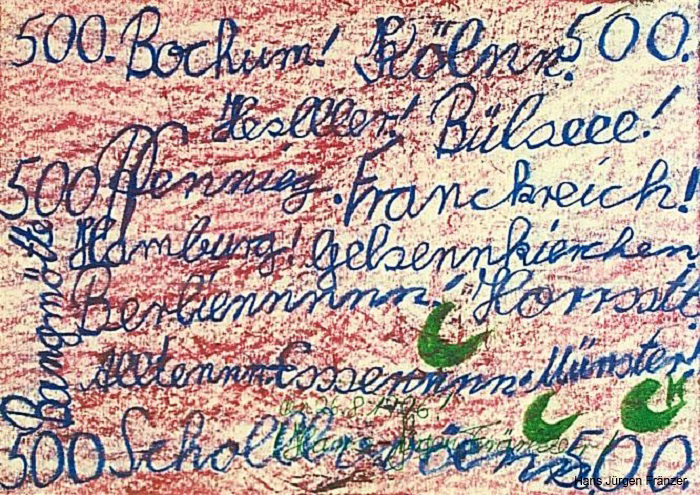 500. Bochum! Kölnn. 500.
Heslller! Bülseee!
500 Pfennieg. Franckreich!
Hamburg! Gelsennkierchen
Berliennnnnn! Horrste
Alltennn-Essennnnn. Münster!
den 26.8.1996!
500 Schollllerr 500.
Hans Jürgen Fränzer